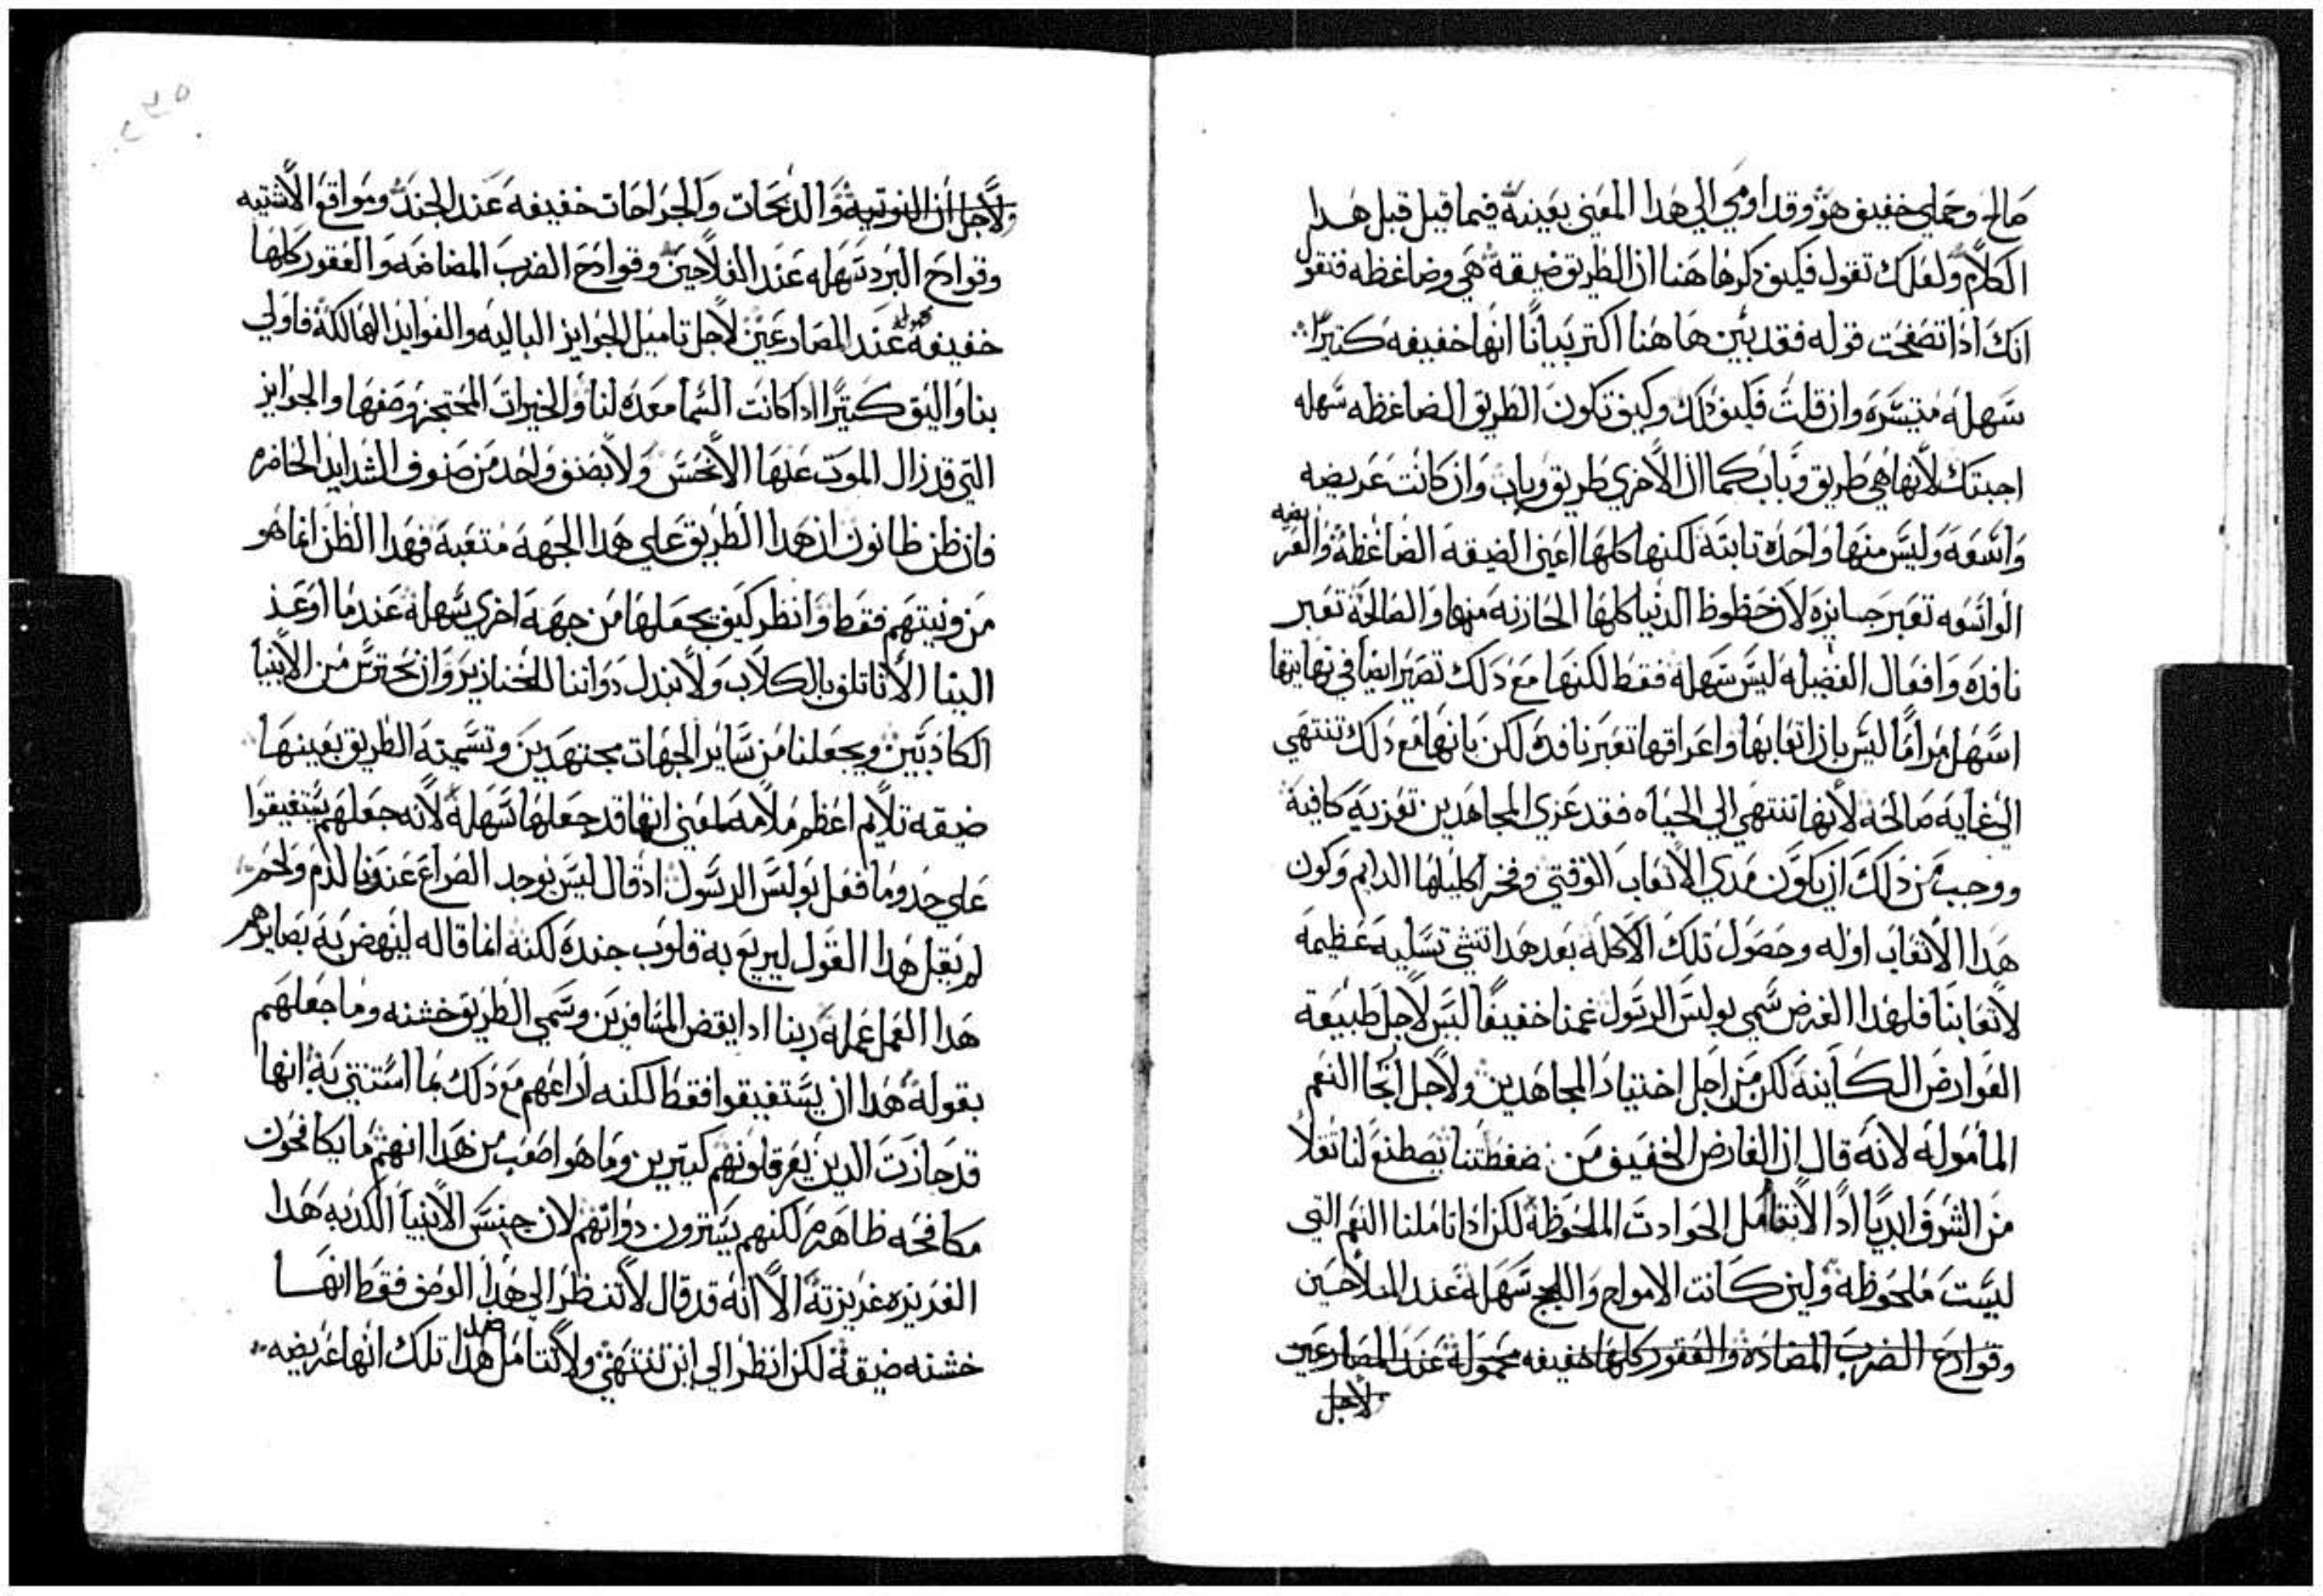 صالح وحملي خفيف هو وقد اومي الي هدا المعني بعينه فيما قيل قبل هدا
الكلام ولعلك تقول فكيف دكرها هنا ان الطريق ضيقة هي وضاغطه فنقول
انك اذا تصفحت قوله فقد بين هاهنا اكتر بيانًا انها خفيفه كتيرًا
سهله متيسره وان قلت فكيف دلك وكيف تكون الطريق الضاغطه سهله
اجبتك لانها هي طريق وباب كما ان الاخري طريق وباب وان كانت عريضه
واسعه وليس منها واحده تابته لكنها كلها اعني الضيقه الضاغطة والعريضه
الواسعه تعبر جايزه لان حظوظ الدنيا كلها الحازنه منها والصالحة تعبر
نافده وافعال الفضيله ليس سهلة فقط لكنها مع دلك تصير ايضا في نهايتها
اسهل مرامًا ليس بان اتعابها واعراقها تعبر نافده لكن بانها مع دلك تنتهي
الي غايه صالحه لانها تنتهي الي الحياه فقد عزي المجاهدين تعزية كافية
ووجب من دلك ان يكون مدي الاتعاب الوقتي وفخر اكليلها الدايم وكون
هدا الاتعاب اوله وحصول تلك الاكله بعد هدا تنشي تسليه عظيمه
لاتعابنا فلهدا الغرض سمي بولس الرسول غمنا خفيفًا ليس لاجل طبيعة
العوارض الكاينه لكن من اجل اختيار المجاهدين ولاجل رجا النعم
المأموله لانه قال ان العارض الخفيف من ضغطتنا يصطنع لنا تقلاً
من الشرف ابديًا ادا لانتامل الحوادت الملحوظة لكن اذا تاملنا النعم التي
ليست ملحوظه ولين كانت الامواج واللجج سهلة عند الملاحين
وقوارع الضرب المضاده والعقور كلها خفيفه محمولة عند المصارعين
لاجل
ولاجل ان النوتية والدبحات والجراحات خفيفه عند الجند ومواقع الاشتيه
وقوادح البرد سهله عند الفلاحين وقوادح الضرب المضاضه والعقور كلها
خفيفة محمولة عند المصارعين لاجل تاميل الجوايز الباليه والفوايد الهالكة فاولي
بنا واليق كتيرًا اذا كانت السما معده لنا والخيرات المحتجز وصفها والجوايز
التي قد زال الموت عنها الا نحس ولا بصنف واحد من صنوف الشدايد الحاضره
فان ظن ظانون ان هدا الطريق علي هدا الجهه متعبه فهدا الظن انما هو
من ونيتهم فقط وانظر كيف يجعلها من جهه اخري سهلة عندما اوعز
الينا الا نتاتلف بالكلاب ولا نبدل دواتنا للخنازير وان نحترس من الانبيا
الكادبين ويجعلنا من ساير الجهات مجتهدين وتسميته الطريق بعينها
ضيقه تلايم اعظم ملامه لمعني انها قد جعلها سهلة لانه جعلهم يستفيقوا
علي حدو ما فعل بولس الرسول ادقال ليس يوجد الصراع عندنا لدم ولحم
لم يقل هدا القول ليريع به قلوب جنده لكنه انما قاله لينهض به بصايرهم
هدا العمل عمله ربنا ادا يقض المسافرين وسمي الطريق خشنه وما جعلهم
بقوله هدا ان يستفيقوا فقط لكنه اراعهم مع دلك بما استتني به انها
قد حازت الدين يعرقلونهم كتيرين وما هو اصعب من هدا انهم ما يكافحون
مكافحه ظاهره لكنهم يسترون دواتهم لان جنس الانبيا الكدبه هدا
الغريزه غريزته الا انه قد قال لا تنظر الي هدا الوصف فقط انها
خشنه ضيقة لكن انظر الي اين تنتهي ولا تتامل ضد هدا تلك انها عريضه